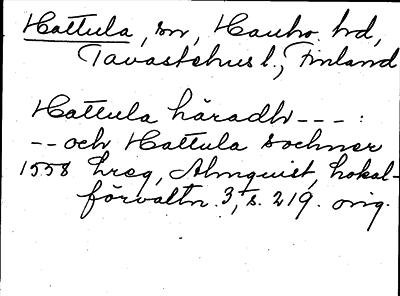 Hattula, sn, Hauho hd,
Tavastehus l., Finland
Hattula häradh --- :
-- och Hattula sochner
1558 hreg, Almquist, Lokal-
förvaltn. 3, s. 219. orig.